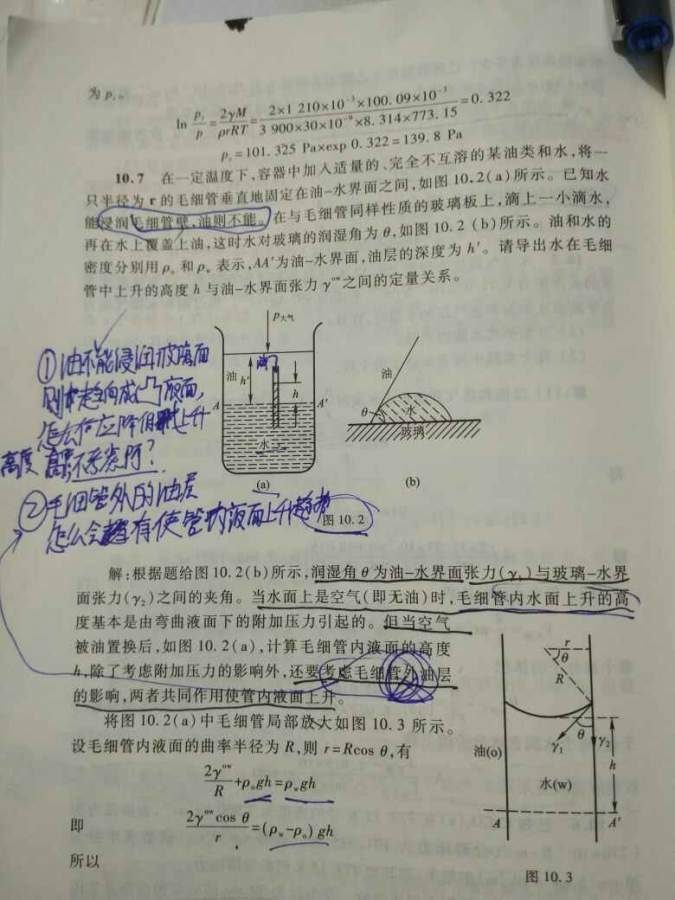 为 pᵣ。
ln pᵣ/p = 2γM/ρrRT = 2×1 210×10⁻³×100.09×10⁻³/3 900×30×10⁻⁹×8.314×773.15 = 0.322
pᵣ=101.325 Pa×exp 0.322=139.8 Pa
10.7 在一定温度下,容器中加入适量的、完全不互溶的某油类和水,将一
只半径为 r 的毛细管垂直地固定在油-水界面之间,如图 10.2(a)所示。已知水
能浸润毛细管壁,油则不能。在与毛细管同样性质的玻璃板上,滴上一小滴水,
再在水上覆盖上油,这时水对玻璃的润湿角为 θ,如图 10.2 (b)所示。油和水的
密度分别用 ρₒ 和 ρw 表示,AA′为油-水界面,油层的深度为 h′。请导出水在毛细
管中上升的高度 h 与油-水界面张力 γᵒʷ之间的定量关系。
①油不能浸润玻璃面
则趋向成凸液面,
上升
高度
②毛细管外的油层
怎么会有使管内液面上升趋势
p大气
油
h′
h
A
A′
水
(a)
油
θ
水
玻璃
(b)
图 10.2
解:根据题给图 10.2(b)所示,润湿角 θ 为油-水界面张力(γ₁)与玻璃-水界
面张力(γ₂)之间的夹角。当水面上是空气(即无油)时,毛细管内水面上升的高
度基本是由弯曲液面下的附加压力引起的。但当空气
被油置换后,如图 10.2(a),计算毛细管内液面的高度
h,除了考虑附加压力的影响外,还要考虑毛细管外油层
的影响,两者共同作用使管内液面上升。
将图 10.2(a)中毛细管局部放大如图 10.3 所示。
设毛细管内液面的曲率半径为 R,则 r=Rcos θ,有
2γᵒʷ/R+ρₒgh=ρwgh
即 2γᵒʷcos θ/r=(ρw-ρₒ)gh
所以
r
θ
R
θ
γ₁
γ₂
h
油(o)
水(w)
A
A′
图 10.3